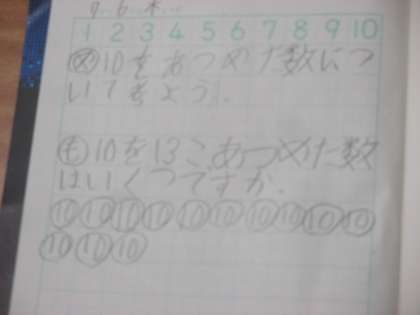 9.6.木
1 2 3 4 5 6 7 8 9 10
め 10をあつめた数につ
いてきよう.
も 10を13こあつめた数
はいくつですか.
10 10 10 10 10 10 10 10 10 10
10 10 10